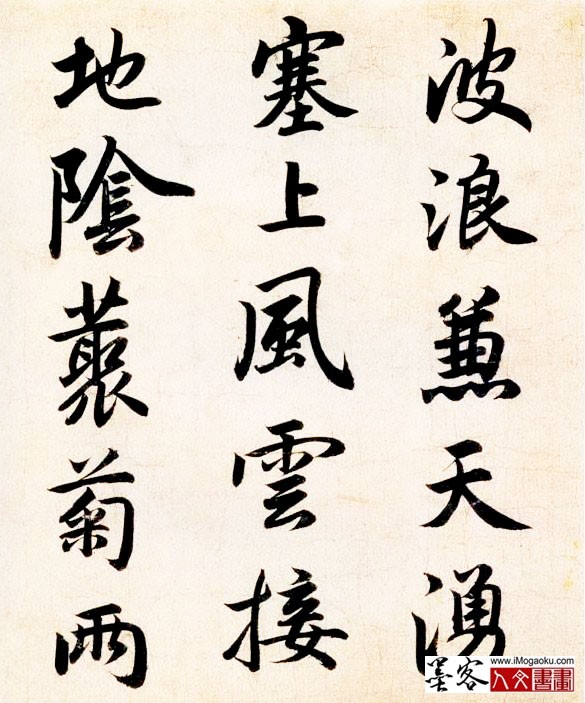 波浪兼天湧
塞上風雲接
地陰藂菊兩
墨客
www.iMogaoku.com
人文書畫